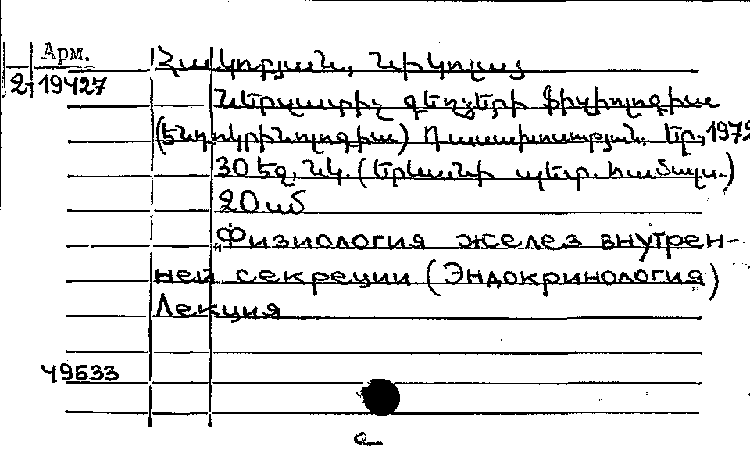 Арм.
2 19427
Հակոբյան, Նիկոլայ
Ներզատիչ գեղձերի ֆիզիոլոգիա
(Էնդոկրինոլոգիա) Դասախոսություն. Եր., 1972
30 եզ. նկ. (Երևանի պետ. համալս.)
20 սմ
"Физиология желез внутрен-
ней секреции (Эндокринология)
Лекция
49533